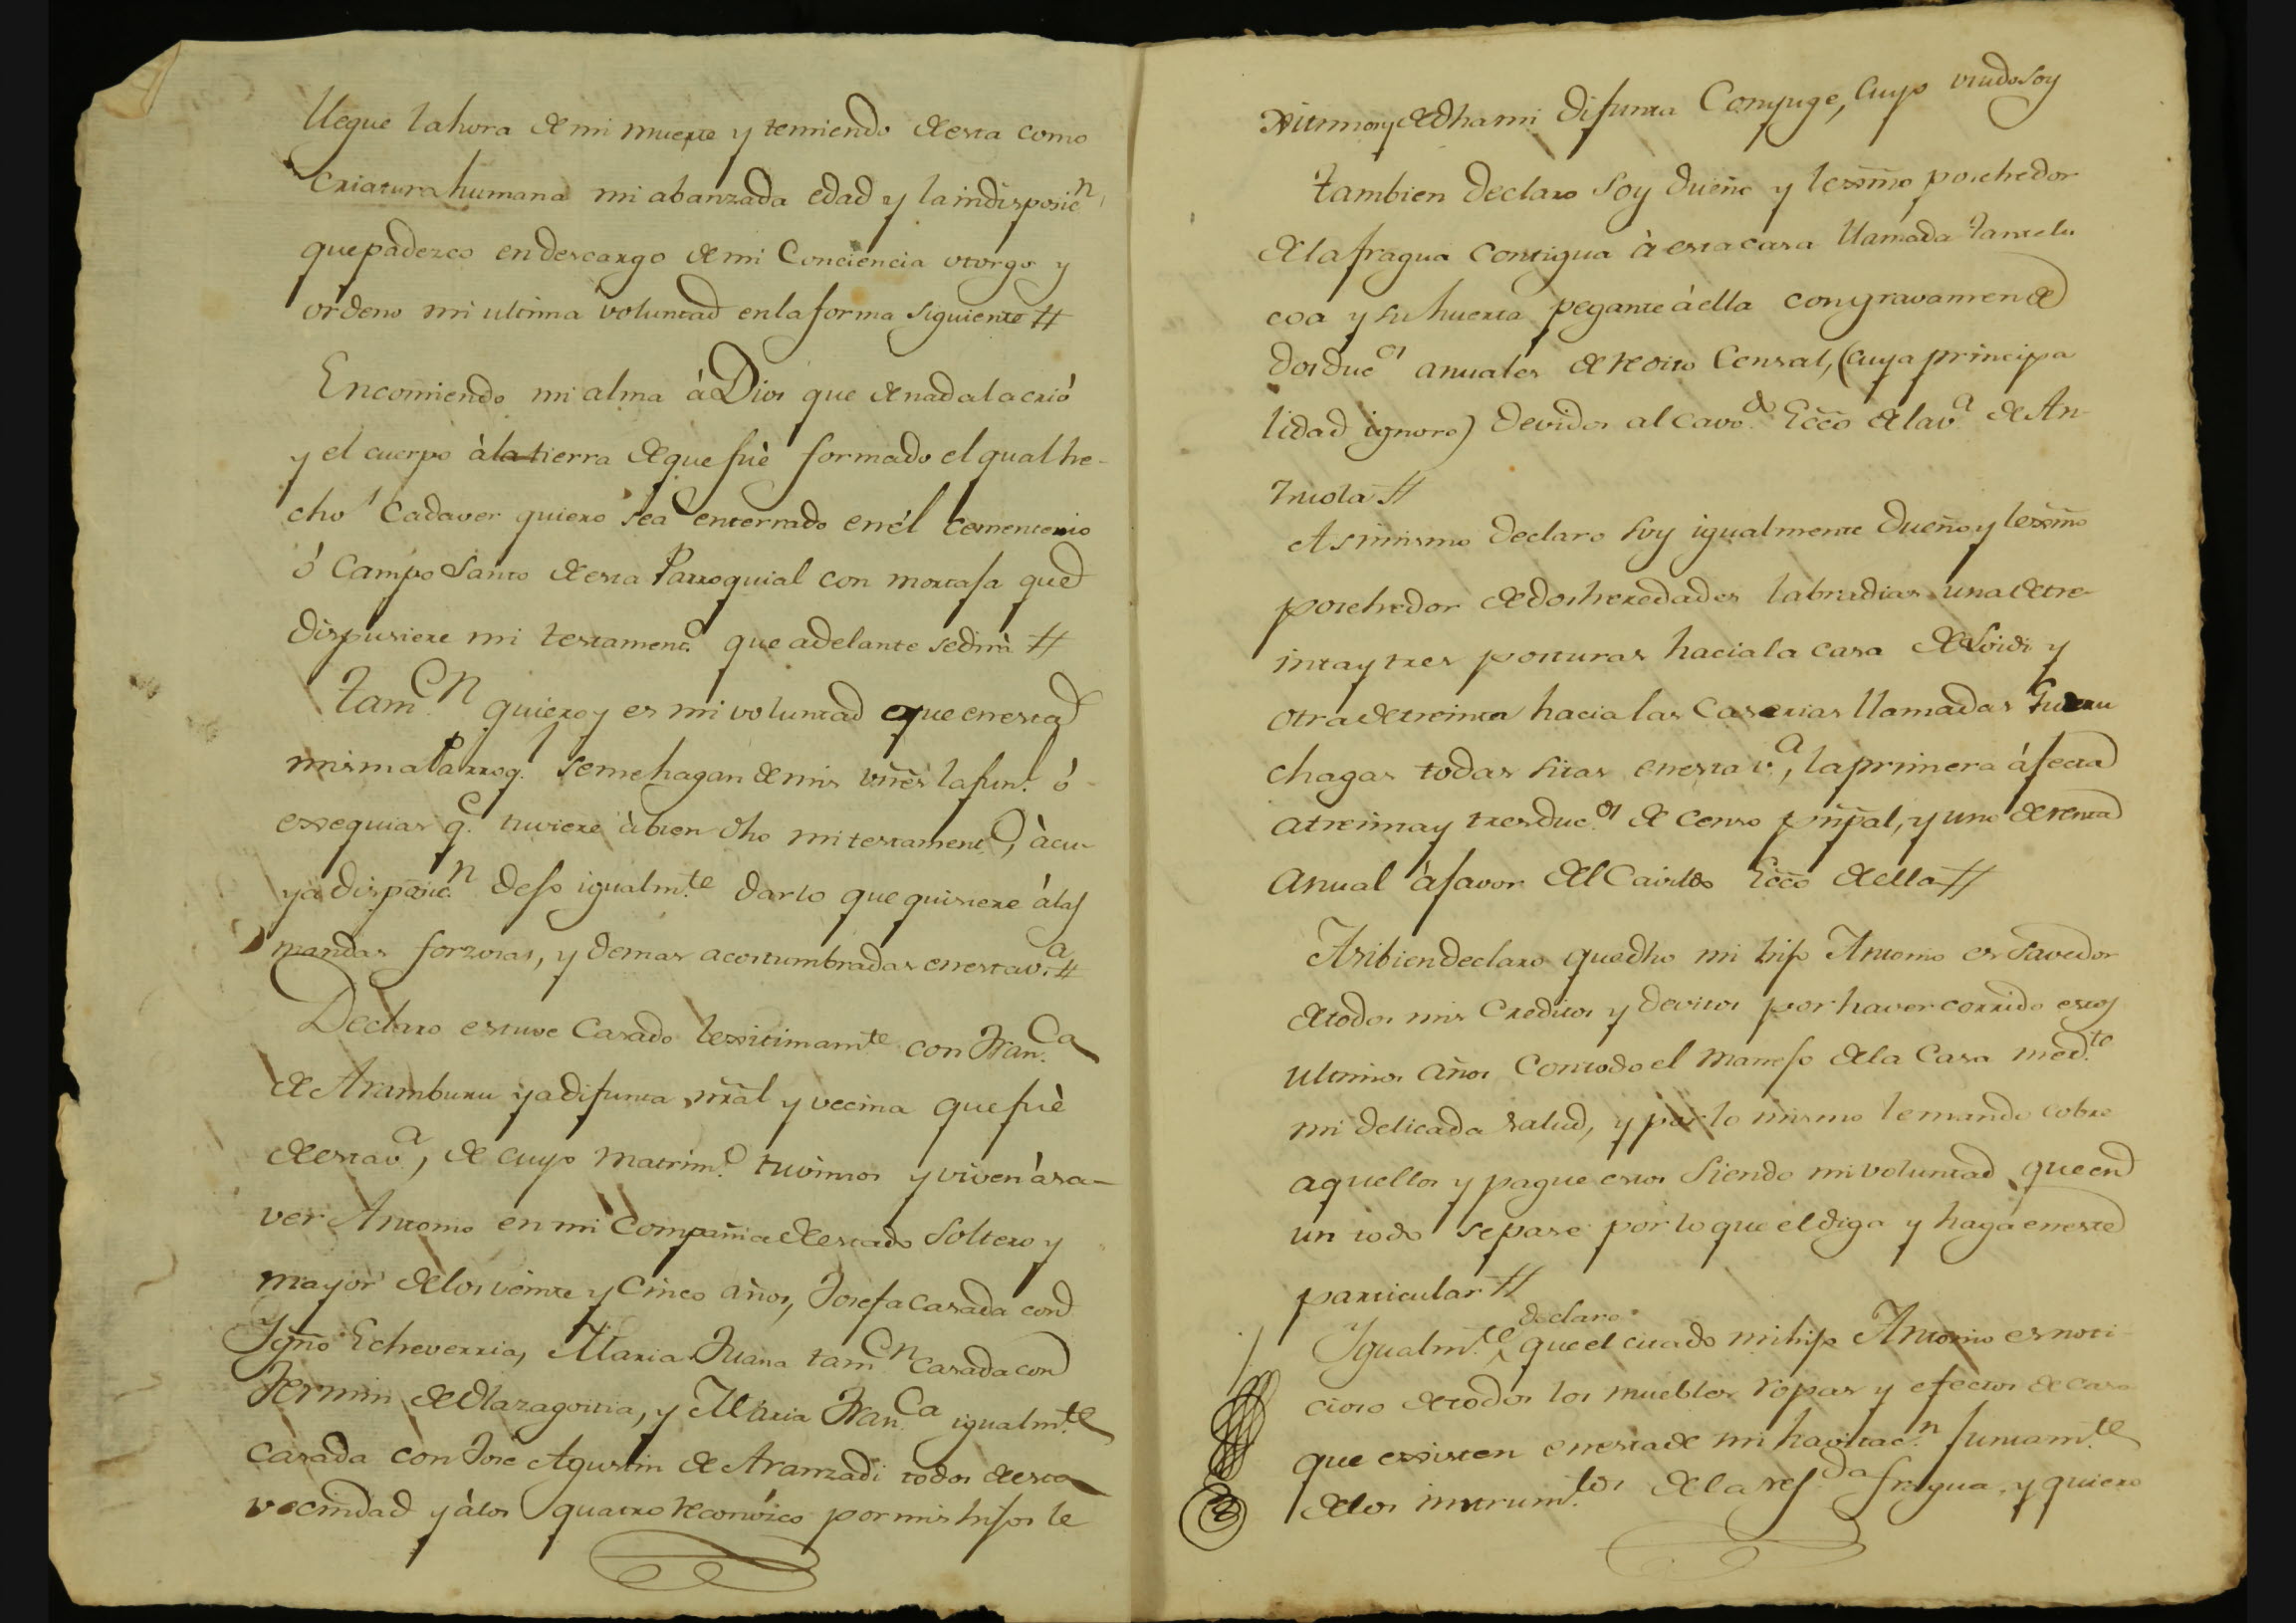 llegue la hora de mi muerte y temiendo de esta como
criatura humana mi abanzada edad y la indisposicn
que padezco en descargo de mi Conciencia otorgo y
ordeno mi ultima voluntad en la forma siguiente #
Encomiendo mi alma à Dios que de nada la crió
y el cuerpo à la tierra de que fuè formado el qual he-
cho Cadaver quiero sea enterrado en él cementerio
ó Campo Santo de esta Parroquial con mortaja que
dispusiere mi testamento que adelante se dirà #
Tamen quiero y es mi voluntad que en esta
misma Parroql se me hagan de mis vnes la funl ó
exequias qe tuviere à bien dho mi testamento, à cu-
ya disposicn dejo igualmte dar lo que quisiere à las
mandas forzosas, y demas acostumbradas en esta va #
Declaro estuve Casado lexitimamte con Franca
de Aramburu ya difunta, nral y vecina que fuè
de esta va, de cuyo matrimo tuvimos y viven à sa-
ver Antonio en mi Compañia de estado Soltero y
mayor de los veinte y Cinco años, Josefa casada con
Ygno Echeverria, Maria Juana tamen casada con
Fermin de Olazagoitia, y Maria Franca igualmte
casada con José Agustin de Aranzadi todos de esta
vecindad y à los quatro reconózco por mis hijos le
xitimos y de dha mi difunta Conyuge, cuyo viudo soy
Tambien declaro soy dueño y lexmo posehedor
de la fragua contigua à esta casa llamada
coa y su huerta pegante à ella con gravamen de
dos ducos anuales de redito Censal, (cuya principa
lidad ignoro) devidos al cavdo Ecco de la va de An-
zuola #
Asimismo declaro soy igualmente dueño y lexmo
posehedor de dos heredades labradias una de tre-
inta y tres posturas hacia la casa de Loidi y
otra de treinta hacia las Caserias llamadas
chagas todas sitas en esta va, la primera àfecta
a treinta y tres ducos de censo pñpal, y uno de renta
anual à favor del Cavildo Ecco de ella #
Asibien declaro que dho mi hijo Antonio es savedor
de todos mis creditos y devitos por haver corrido estos
ultimos años con todo el manejo de la Casa medte
mi delicada salud, y por lo mismo le mando cobre
aquellos y pague estos siendo mi voluntad que en
un todo se pase por lo que el diga y haga en este
particular #
declaro
Ygualmte que el citado mi hijo Antonio es noti-
cioso de todos los muebles ropas y efectos de casa
que existen en esta de mi havitacn juntamte
de los instrumtos de la refda fragua, y quiero